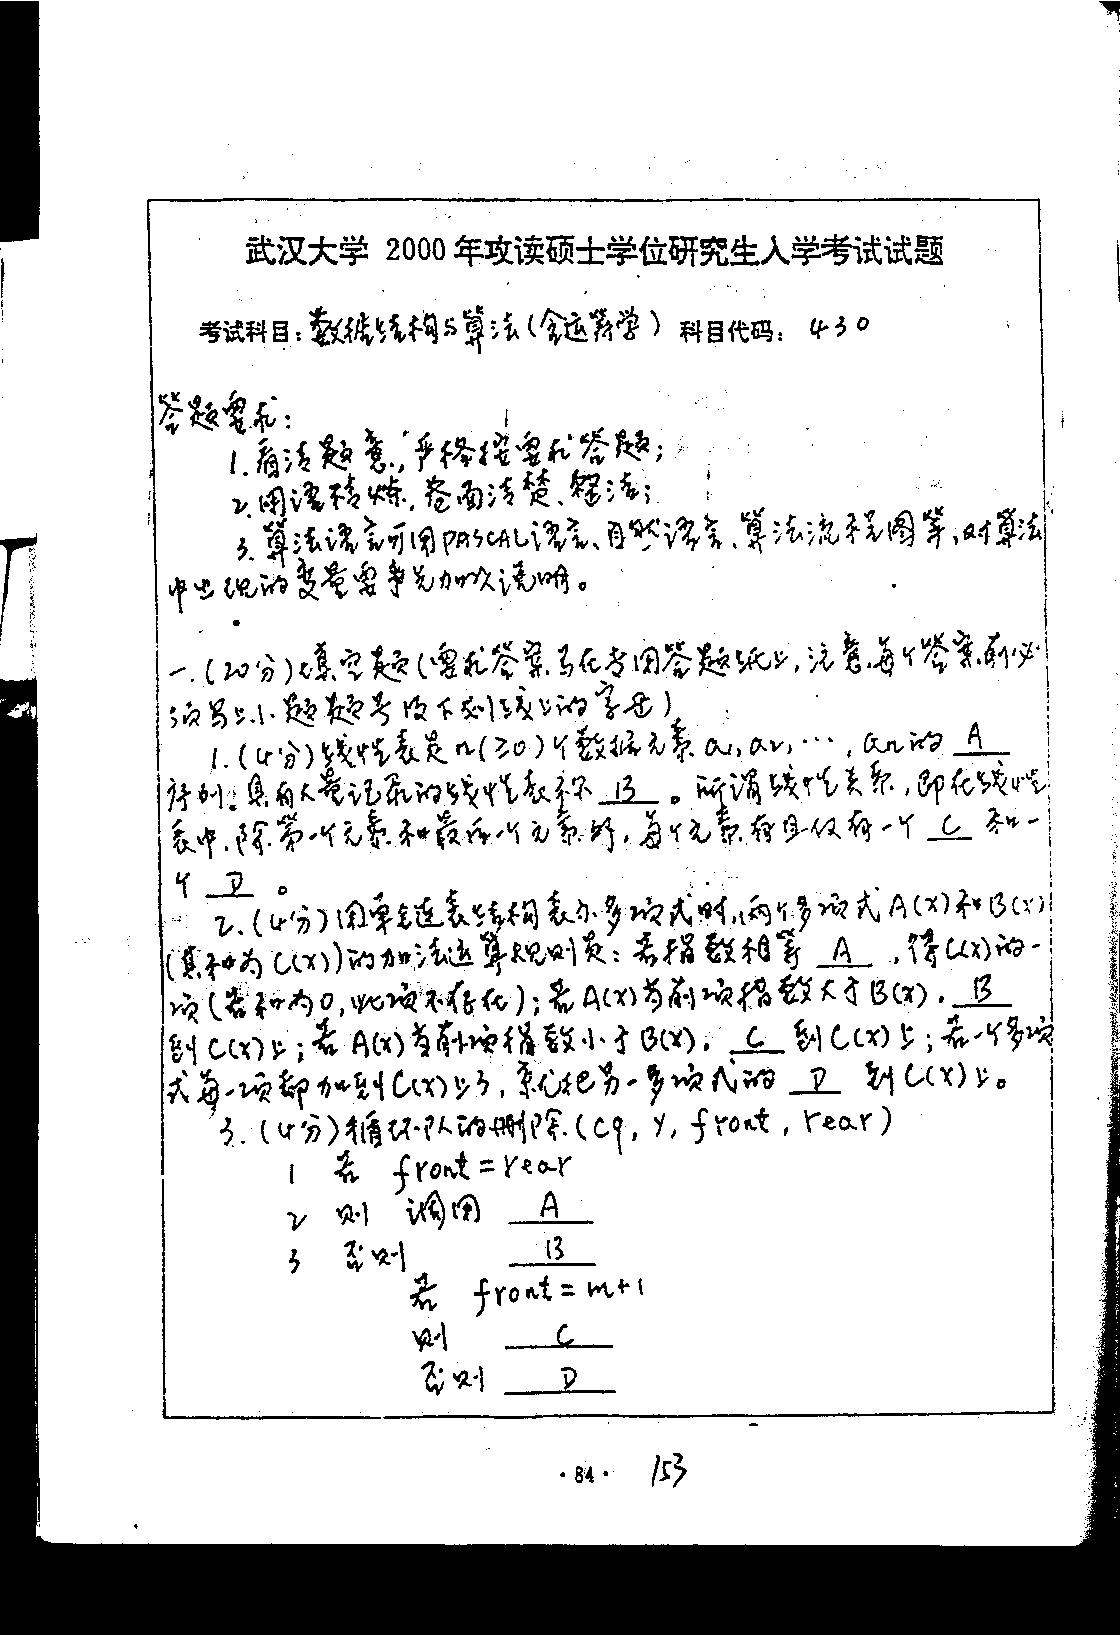 武汉大学 2000年攻读硕士学位研究生入学考试试题
考试科目:数据结构与算法(含运筹学) 科目代码: 430
答题要求:
1.看清题意,严格按要求答题;
2.用语精炼,卷面清楚、整洁;
3.算法语言可用PASCAL语言、自然语言、算法流程图等,对算法
中出现的变量要事先加以说明。
一.(20分)填空题(要求答案写在专用答题纸上,注意,每个答案前必
须写上小题题号及下划线上的字母)
1.(4分)线性表是n(≥0)个数据元素a1,a2,…,an的 A
序列;具有大量记录的线性表称 B 。所谓线性关系,即在线性
表中,除第一个元素和最后一个元素外,每个元素有且仅有一个 C 和一
个 D 。
2.(4分)用单链表结构表示多项式时,两个多项式A(X)和B(X)
(其和为C(X))的加法运算规则是:若指数相等 A ,得C(X)的一
项(若和为0,此项不存在);若A(X)当前项指数大于B(X), B
到C(X)上;若A(X)当前项指数小于B(X), C 到C(X)上;若一个多项
式每一项都加到C(X)上了,就把另一多项式的 D 到C(X)上。
3.(4分)循环队的删除(cq, y, front, rear)
1 若 front=rear
2 则 调用 A
3 否则 B
若 front=m+1
则 C
否则 D
·84· 153